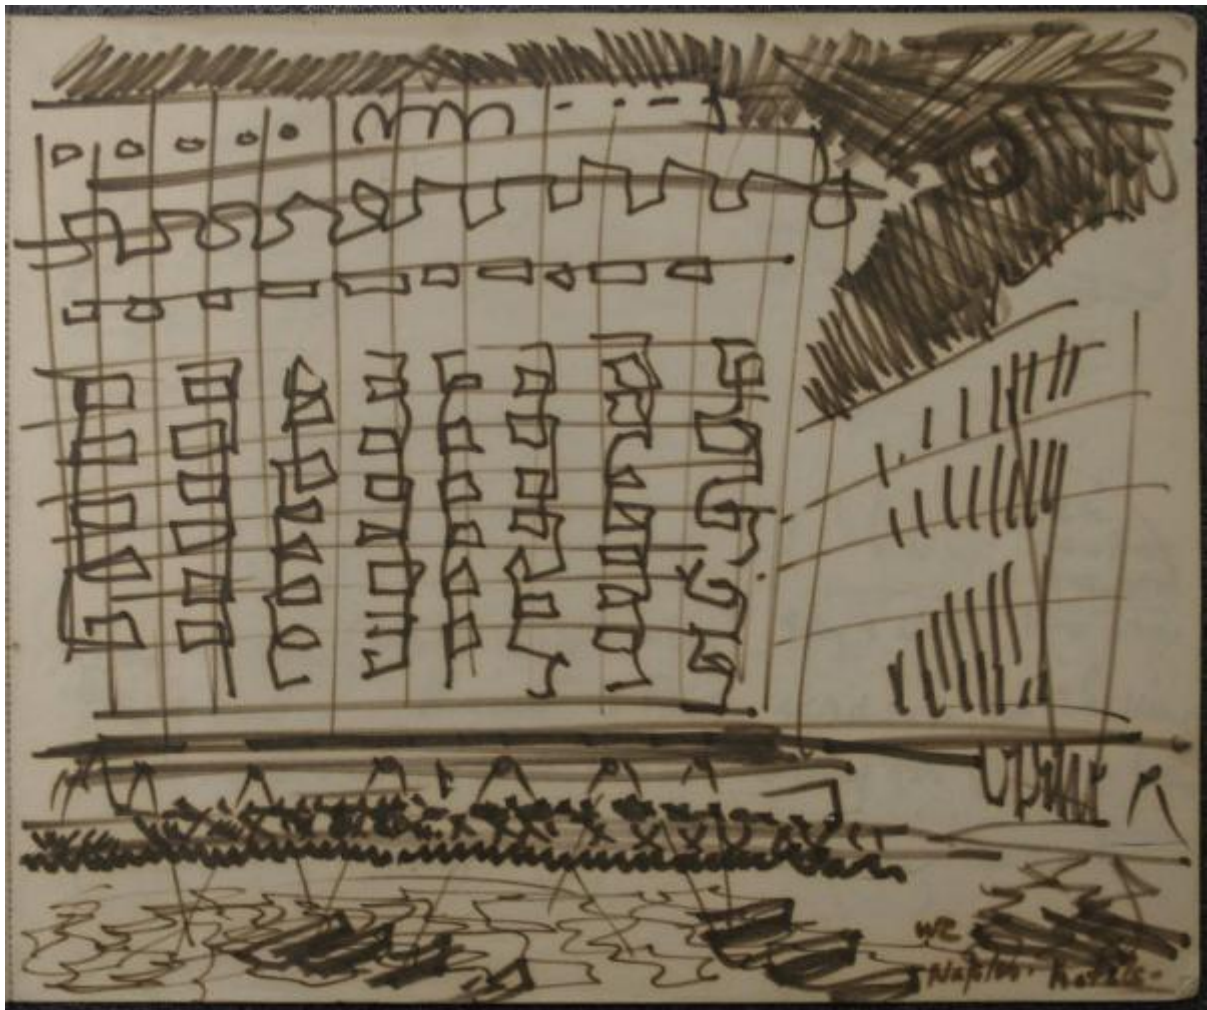 WR
Naples - Hotels -